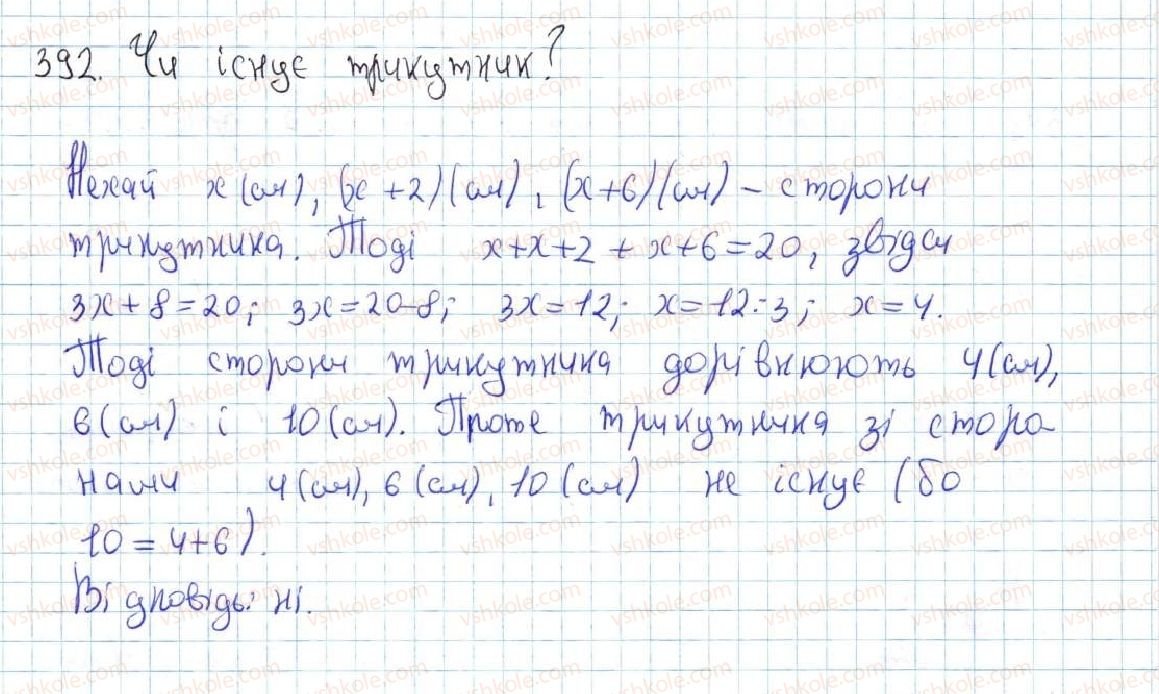 392. Чи існує трикутник?
Нехай x (см), (x + 2) (см), (x + 6) (см) – сторони
трикутника. Тоді x + x + 2 + x + 6 = 20, звідси
3x + 8 = 20; 3x = 20 - 8; 3x = 12; x = 12 : 3; x = 4.
Тоді сторони трикутника дорівнюють 4 (см),
6 (см) і 10 (см). Проте трикутника зі сторо-
нами 4 (см), 6 (см), 10 (см) не існує (бо
10 = 4 + 6).
Відповідь: ні.